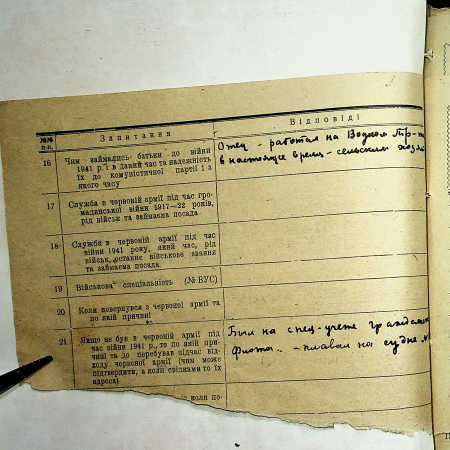 №№ п-п.
Запитання
Відповіді
16
Чим займались батьки до війни
1941 р. і в даний час та належність
їх до комуністичної партії і з
якого часу
Отец - работал на Водном
в настоящее время - сельским
17
Служба в червоній армії під час гро-
мадянської війни 1917—22 років,
рід військ та займаєма посада
18
Служба в червоній армії під час
війни 1941 року, який час, рід
військ, останнє військове звання
та займаєма посада
19
Військова спеціальність (№ ВУС)
20
Коли повернувся з червоної армії та
по якій причині
21
Якщо не був в червоній армії під
час війни 1941 р., то по якій при-
чині та де перебував підчас від-
ходу червоної армії (чим може
підтвердити, а коли свідками то їх
адреса)
Был на спец-учете
флота. - плавал на судне
коли по-